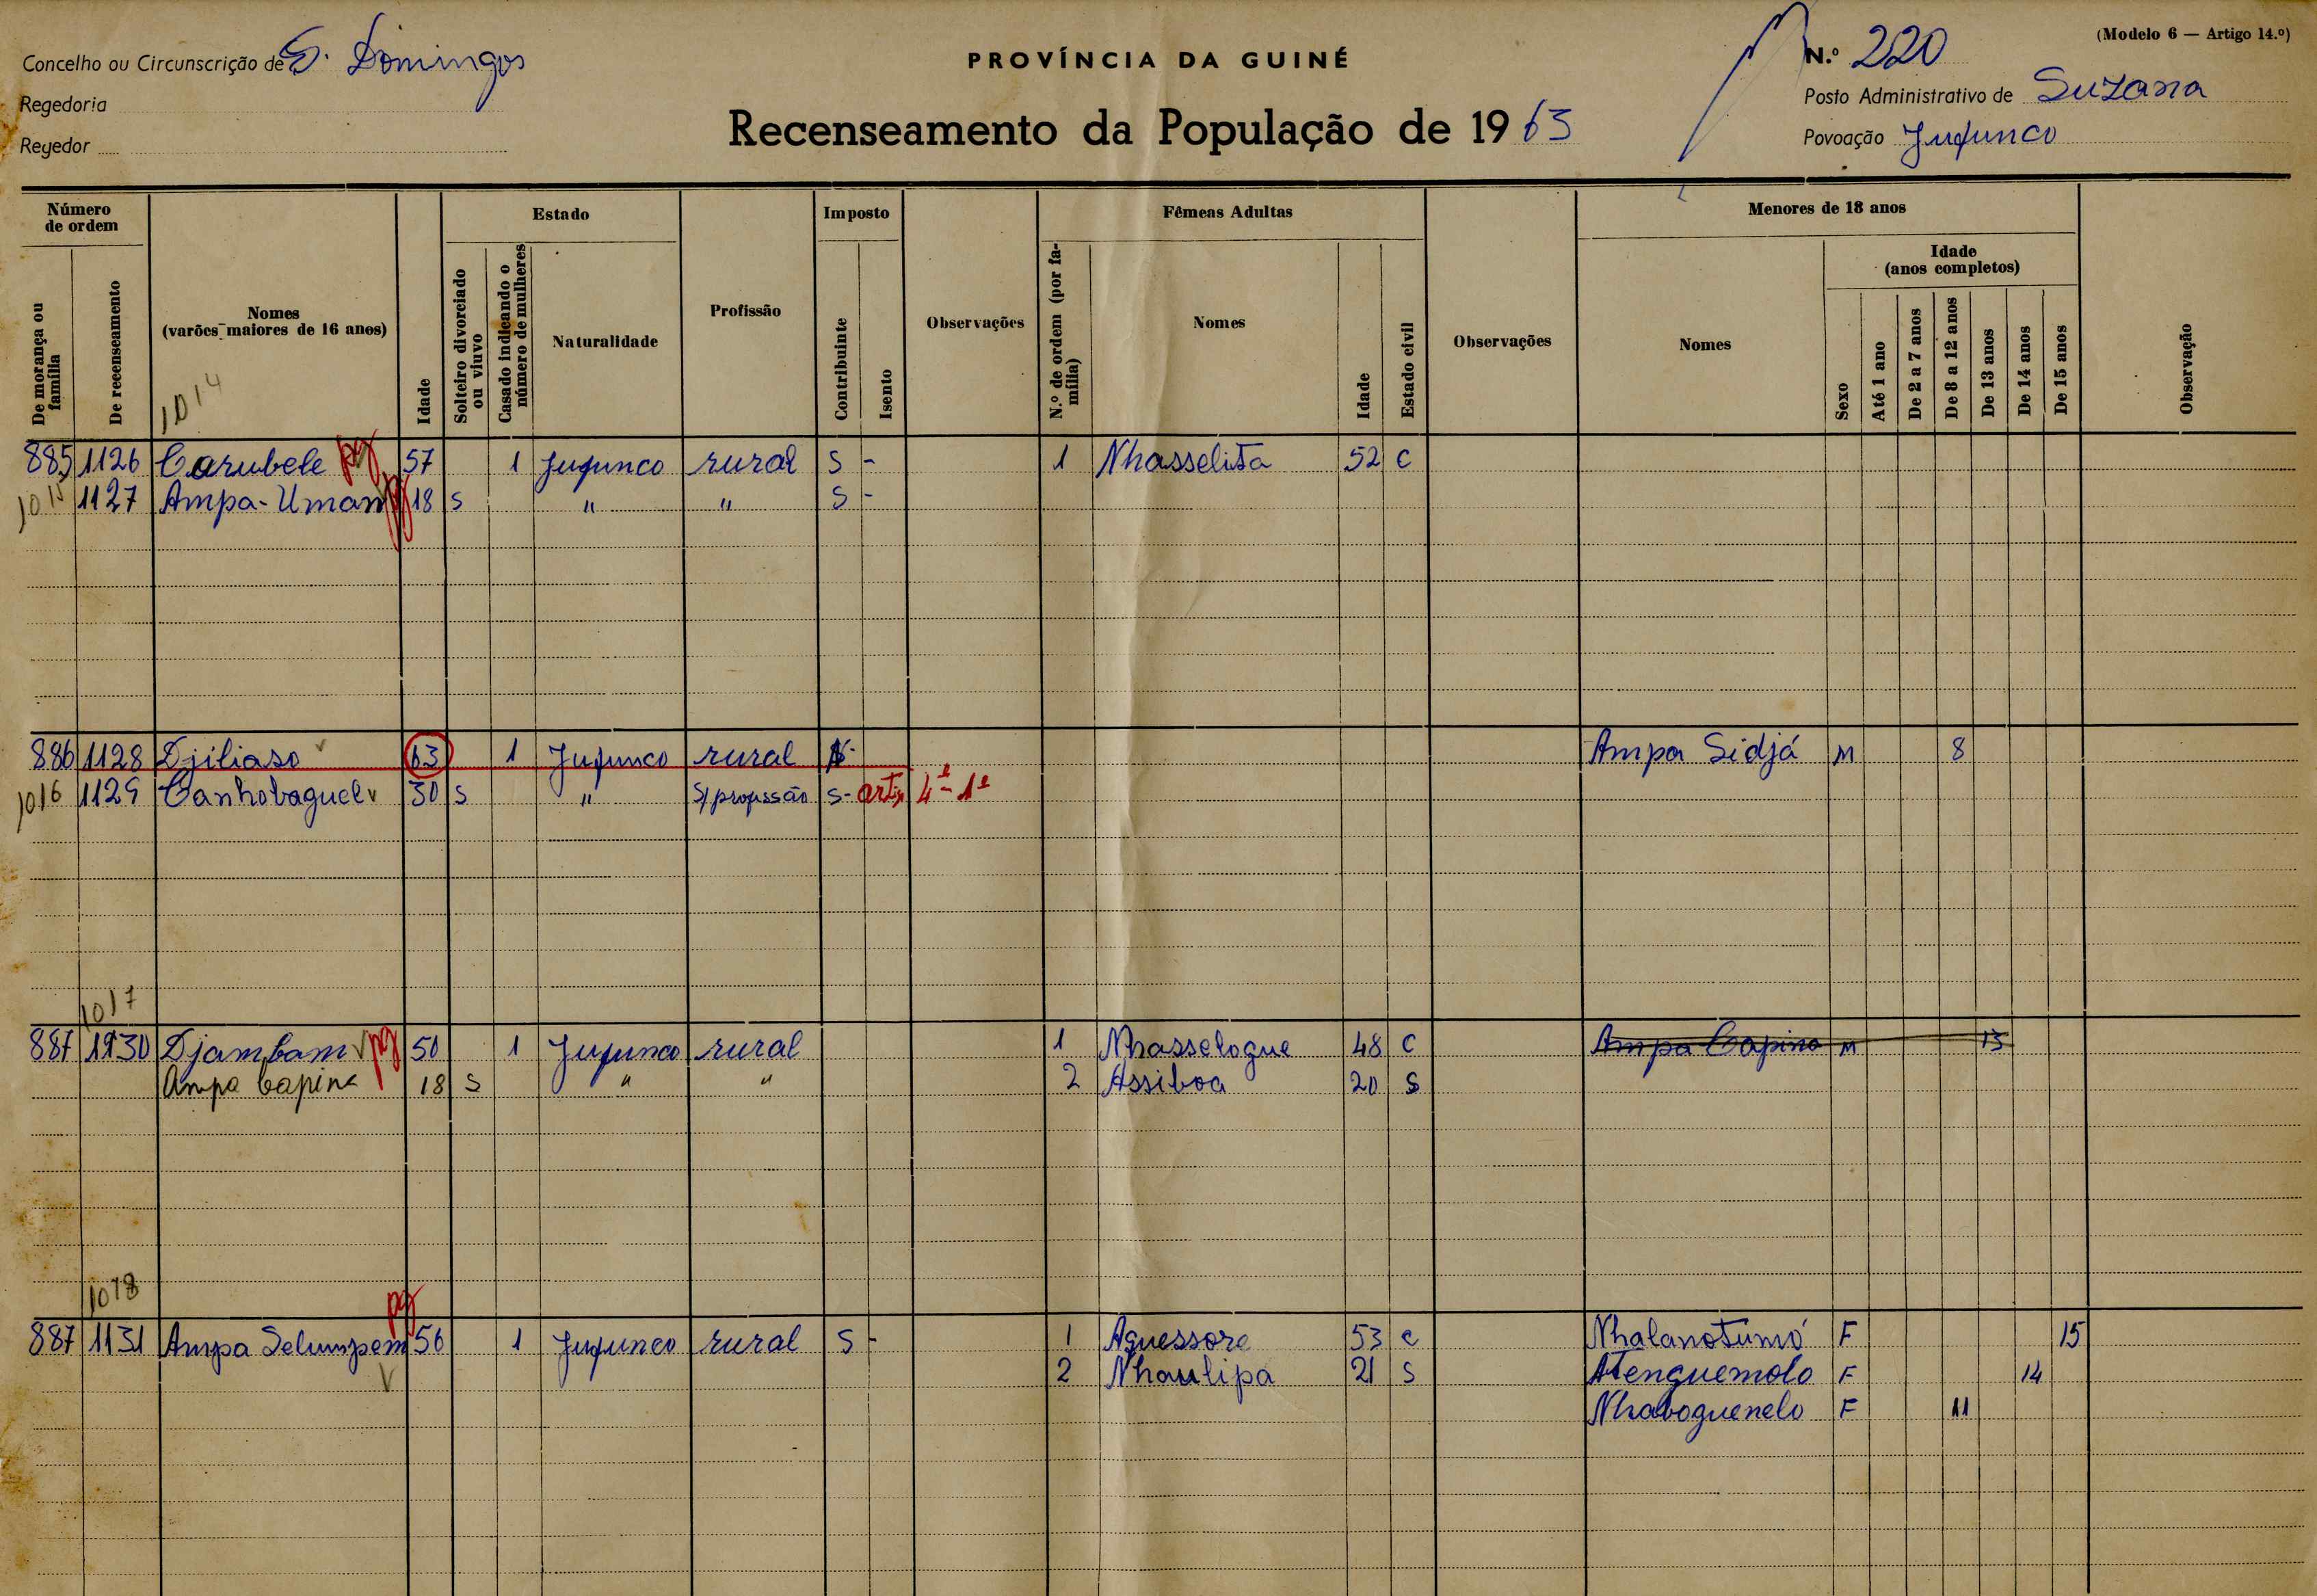 (Modelo 6 — Artigo 14.º)
Concelho ou Circunscrição de S. Domingos
PROVÍNCIA DA GUINÉ
N.º 220
Regedoria
Posto Administrativo de Suzana
Recenseamento da População de 1963
Regedor
Povoação Jufunco
Número de ordem
Estado
Imposto
Fêmeas Adultas
Menores de 18 anos
De morança ou família
De recenseamento
Nomes (varões maiores de 16 anos)
Idade
Solteiro divorciado ou viuvo
Casado indicando o número de mulheres
Naturalidade
Profissão
Contribuinte
Isento
Observações
N.º de ordem (por família)
Nomes
Idade
Estado civil
Observações
Nomes
Sexo
Idade (anos completos)
Até 1 ano
De 2 a 7 anos
De 8 a 12 anos
De 13 anos
De 14 anos
De 15 anos
Observação
1014
885 1126 Carubele pg 57 1 Jufunco rural S - 1 Nhasselita 52 C
1015 1127 Ampa-Uman pg 18 S " " S -
886 1128 Djiliaso 63 1 Jufunco rural S- Ampa Sidjá M 8
1016 1129 Canhobaguel 30 S " S/profissão S- artº 4º-1º
1017
887 1130 Djambam pg 50 1 Jufunco rural 1 Nhasselogue 48 C Ampa Capina M 13
Ampa Capina 18 S " " 2 Assiboa 20 S
1018
pg
887 1131 Ampa Selumpem 56 1 Jufunco rural S - 1 Aguessore 53 C Nhalanotumó F 15
2 Nhaulipa 21 S Atenguemolo F 14
Nhaboguenelo F 11